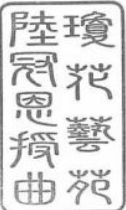 瓊花藝苑
陸冠恩授曲